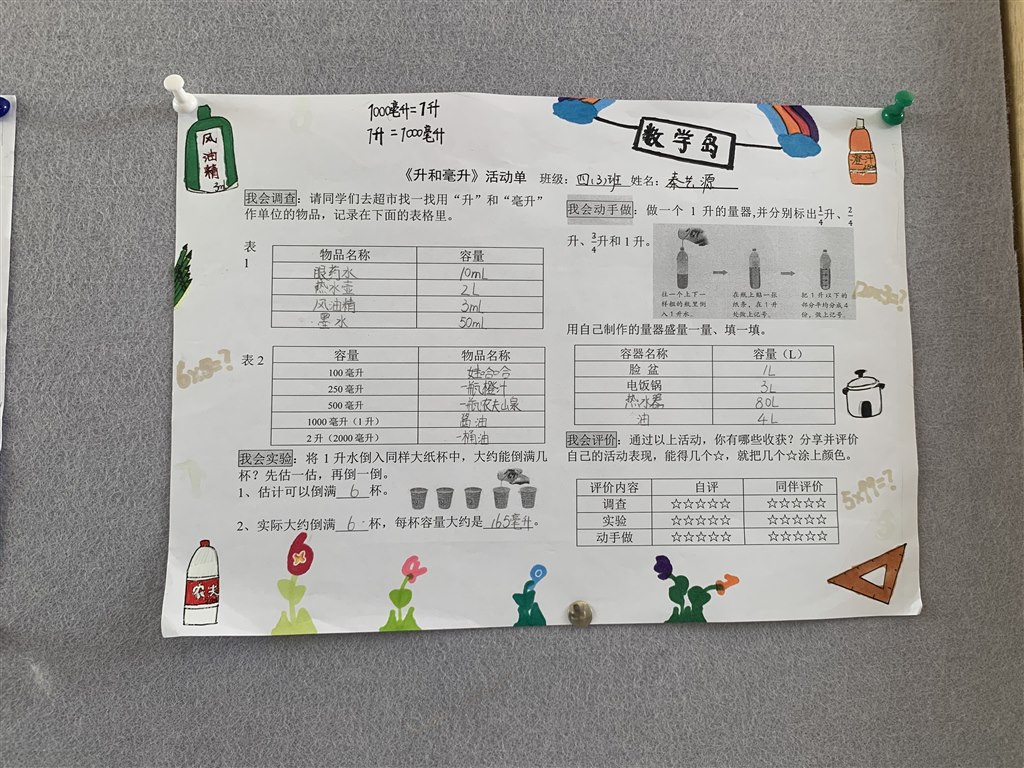 1000毫升=1升
1升=1000毫升
数学岛
风油精
3ml
橙汁
《升和毫升》活动单 班级：四(3)班 姓名：秦艺源
我会调查：请同学们去超市找一找用“升”和“毫升”
作单位的物品，记录在下面的表格里。
表1
物品名称 容量
眼药水 10mL
热水壶 2L
风油精 3mL
墨水 50mL
表2
容量 物品名称
100毫升 娃哈哈
250毫升 一瓶橙汁
500毫升 一瓶农夫山泉
1000毫升（1升） 酱油
2升（2000毫升） 一桶油
我会实验：将1升水倒入同样大纸杯中，大约能倒满几
杯？先估一估，再倒一倒。
1、估计可以倒满 6 杯。
2、实际大约倒满 6 杯，每杯容量大约是 165毫升。
我会动手做：做一个1升的量器,并分别标出1/4升、2/4
升、3/4升和1升。
往一个上下一
样粗的瓶里倒
入1升水。
在瓶上贴一张
纸条，在1升
处做上记号。
把1升以下的
部分平均分成4
份，做上记号。
用自己制作的量器盛量一量、填一填。
容器名称 容量（L）
脸盆 1L
电饭锅 3L
热水器 80L
油 4L
我会评价：通过以上活动，你有哪些收获？分享并评价
自己的活动表现，能得几个☆，就把几个☆涂上颜色。
评价内容 自评 同伴评价
调查 ☆☆☆☆☆ ☆☆☆☆☆
实验 ☆☆☆☆☆ ☆☆☆☆☆
动手做 ☆☆☆☆☆ ☆☆☆☆☆
6x5=?
5x99=?
农夫